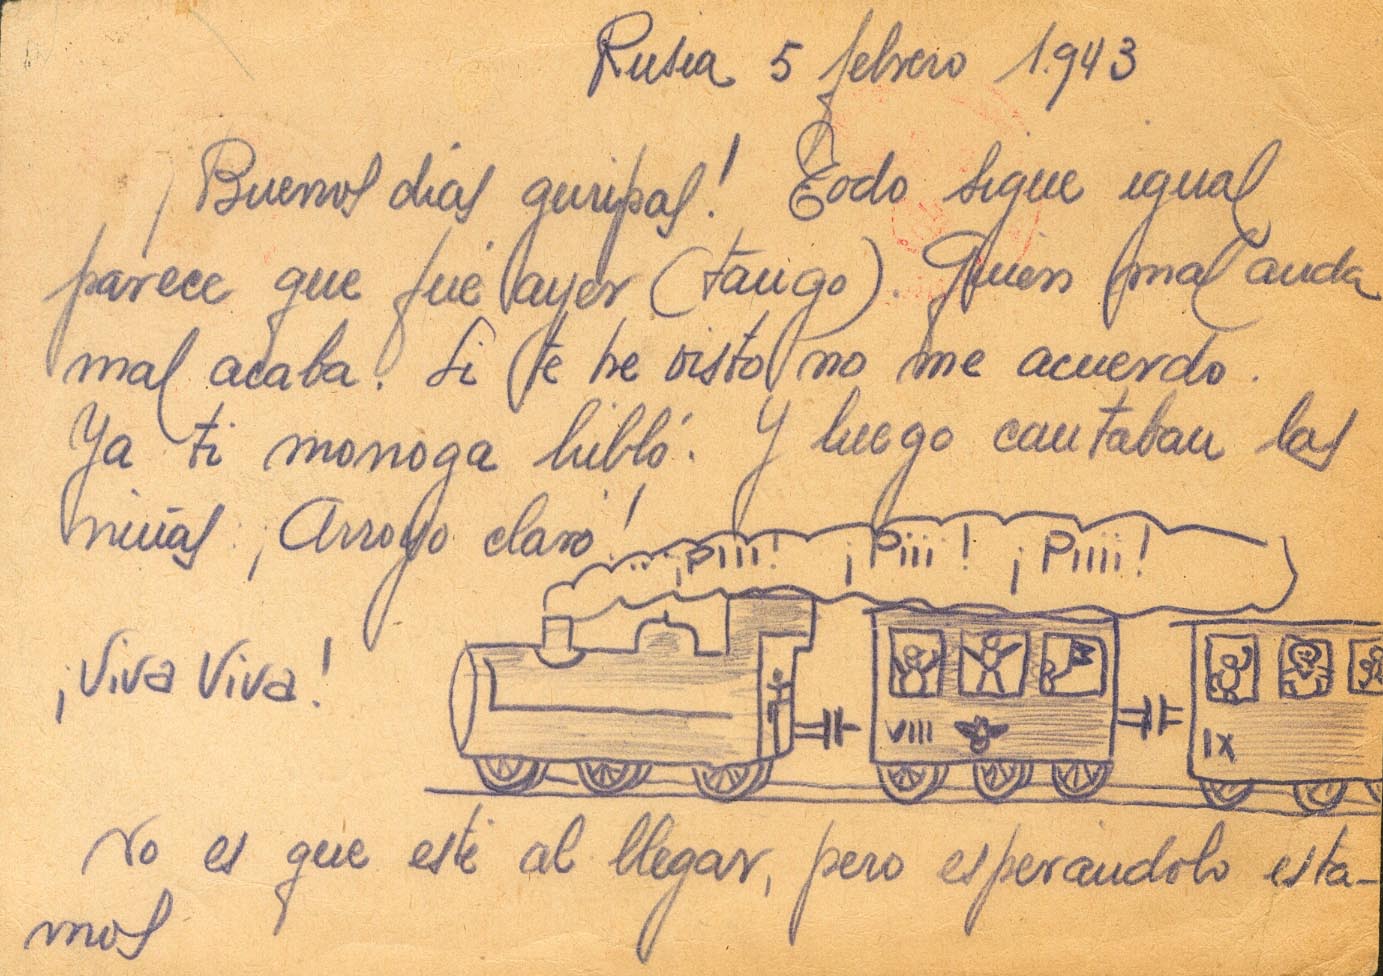 Rusia 5 febrero 1.943
¡Buenos días guripas! Todo sigue igual
parece que fué ayer (tango). Quien mal anda
mal acaba. Si te he visto no me acuerdo.
Ya ti monoga hibló. Y luego cantaban las
niñas ¡Arroyo claro!
... ¡Piii! ¡Piii! ¡Piiii!
¡Viva Viva!
VIII
IX
No es que esté al llegar, pero esperándolo esta-
mos